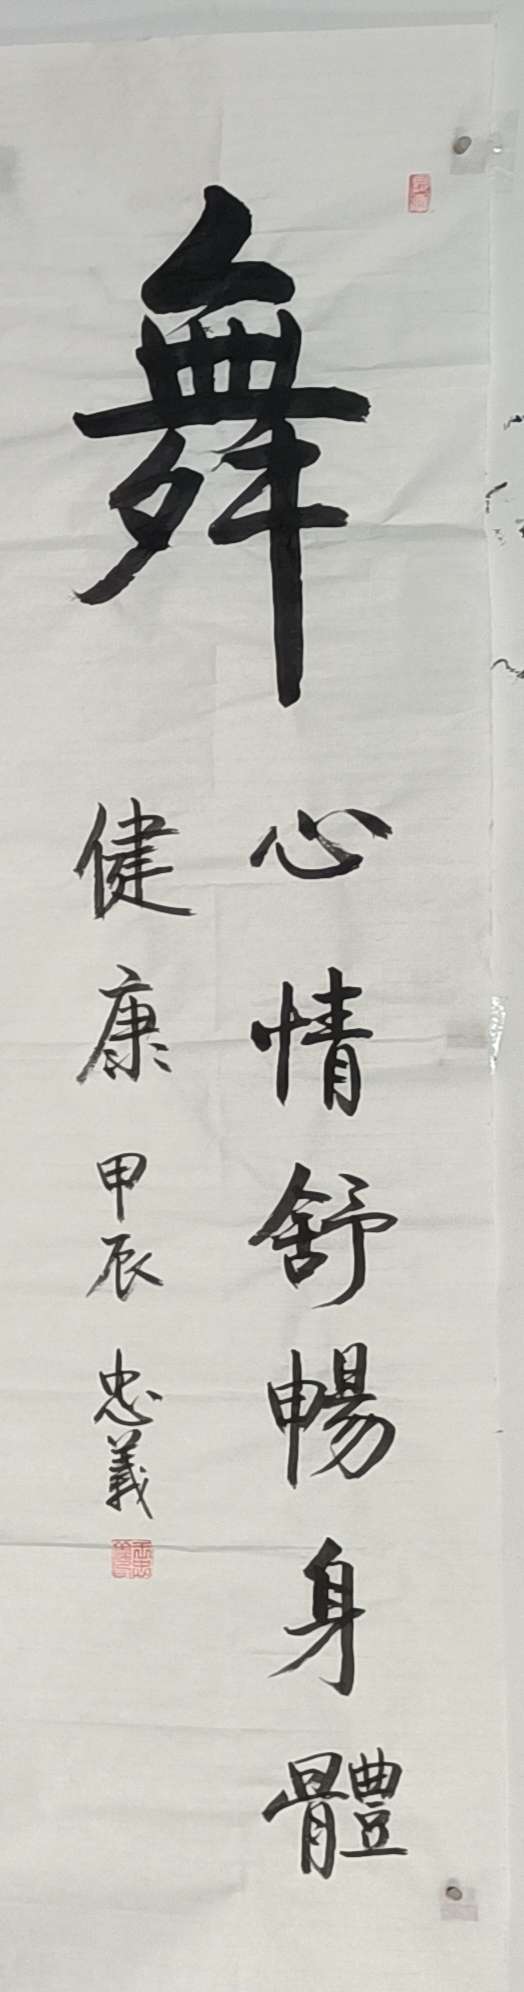 舞
心情舒暢身體
健康甲辰忠義